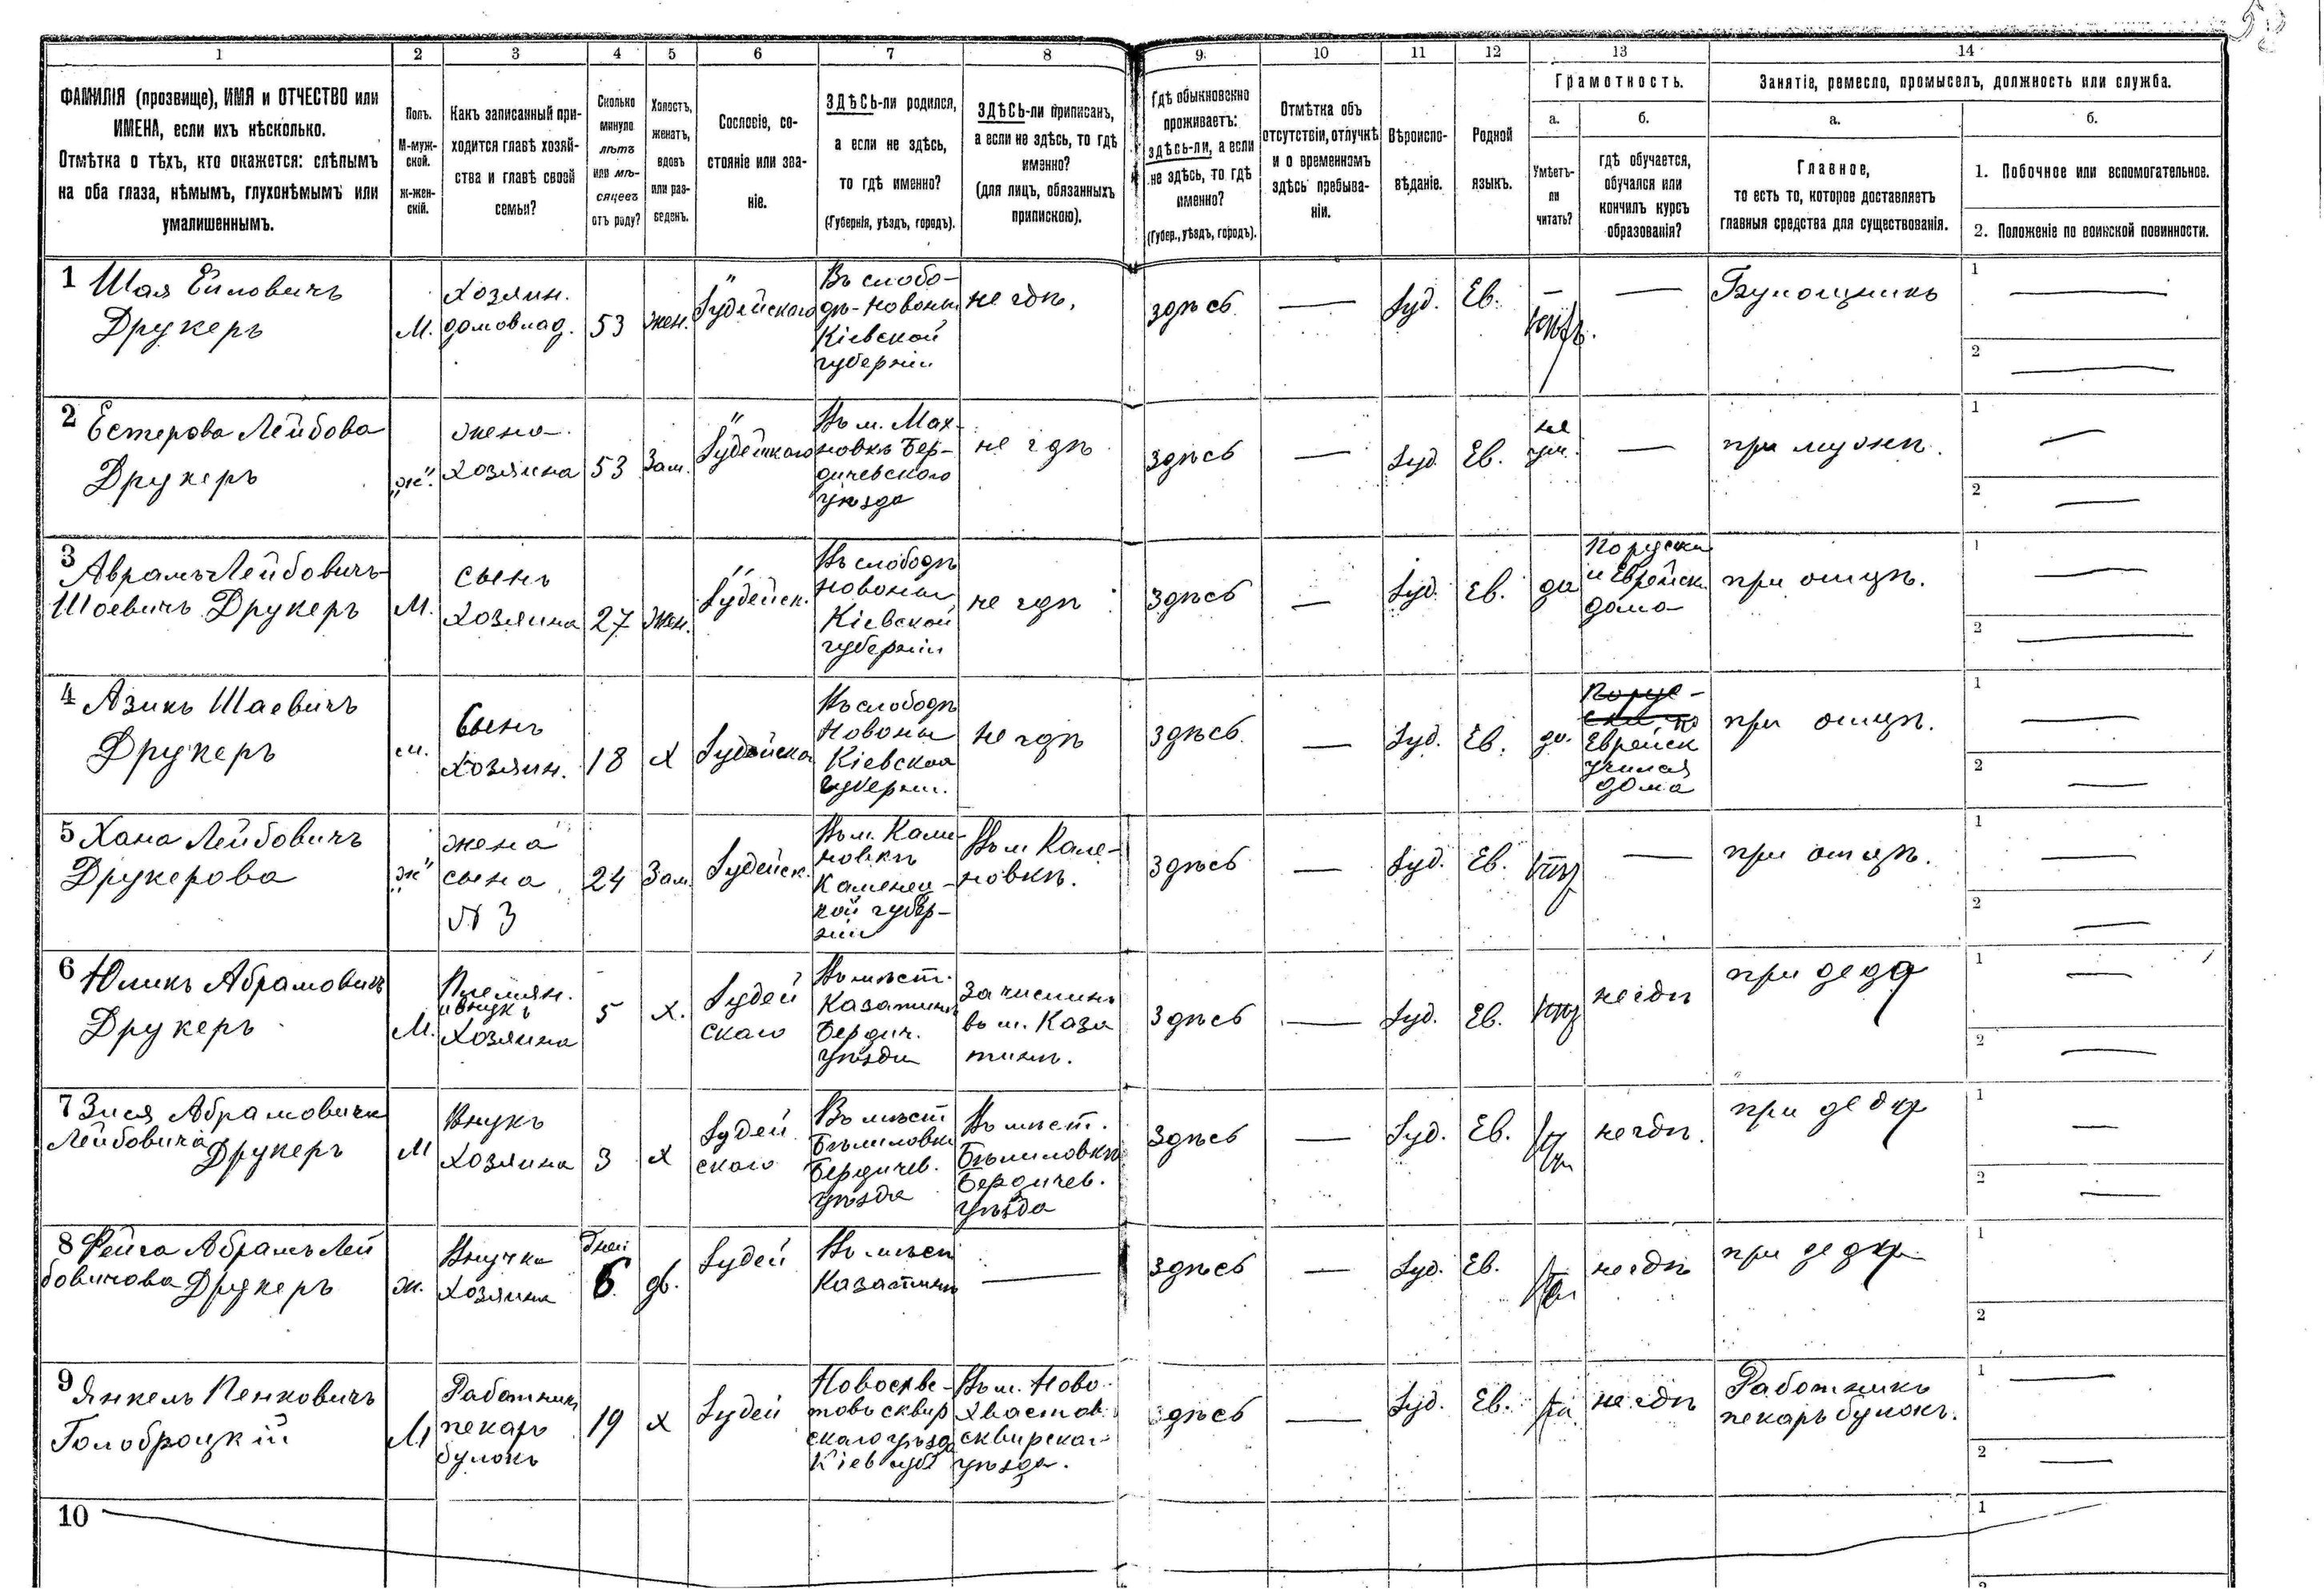 1
2
3
4
5
6
7
8
9.
10
11
12
13
14
ФАМИЛІЯ (прозвище), ИМЯ и ОТЧЕСТВО или
ИМЕНА, если ихъ нѣсколько.
Отмѣтка о тѣхъ, кто окажется: слѣпымъ
на оба глаза, нѣмымъ, глухонѣмымъ или
умалишеннымъ.
Полъ.
М-муж-
ской.
ж-жен-
скій.
Какъ записанный при-
ходится главѣ хозяй-
ства и главѣ своей
семьи?
Сколько
минуло
лѣтъ
или мѣ-
сяцевъ
отъ роду?
Холостъ,
женатъ,
вдовъ
или раз-
веденъ.
Сословіе, со-
стояніе или зва-
ніе.
ЗДѢСЬ-ли родился,
а если не здѣсь,
то гдѣ именно?
(Губернія, уѣздъ, городъ).
ЗДѢСЬ-ли приписанъ,
а если не здѣсь, то гдѣ
именно?
(для лицъ, обязанныхъ
припискою).
Гдѣ обыкновенно
проживаетъ:
здѣсь-ли, а если
не здѣсь, то гдѣ
именно?
(Губер., уѣздъ, городъ).
Отмѣтка объ
отсутствіи, отлучкѣ
и о временномъ
здѣсь пребыва-
ніи.
Вѣроиспо-
вѣданіе.
Родной
языкъ.
Грамотность.
а.
Умѣетъ-
ли
читать?
б.
гдѣ обучается,
обучался или
кончилъ курсъ
образованія?
Занятіе, ремесло, промыселъ, должность или служба.
а.
Главное,
то есть то, которое доставляетъ
главныя средства для существованія.
б.
1. Побочное или вспомогательное.
2. Положеніе по воинской повинности.
1 Шая
Друкеръ
М.
Хозяин.
домовлад.
53
жен.
Іудейскаго
Въ слобо-
дѣ-Новоны
Кіевской
губерніи
не гдѣ.
здѣсь
Іуд.
Ев.
Булощникъ
1
2
2 Естерова Лейбова
Друкеръ
"ж".
жена
Хозяина
53
Зам.
Іудейскаго
Въ м. Мах-
новкѣ Бер-
дичевскаго
уѣзда
не гдѣ
здѣсь
Іуд.
Ев.
не
ум.
при мужѣ.
1
2
3
Аврамъ Лейбовичъ-
Шоевичъ Друкеръ
М.
сынъ
Хозяина
27
Жен.
Іудейск.
Въ слободѣ
Новоны
Кіевской
губерніи
не гдѣ
здѣсь
Іуд.
Ев.
да
По руски
и Еврейск
дома
при отцѣ.
1
2
4 Азикъ Шаевичъ
Друкеръ
м.
Сынъ
Хозяин.
18
Х
Въ слободѣ
Новоны
Кіевской
губерни.
Не гдѣ
здѣсь
Іуд.
Ев.
да.
Еврейск
учился
дома
при отцѣ.
1
2
5 Хана Лейбовичъ
Друкерова
"ж"
жена
сына
№ 3
24
Зам.
Іудейск.
новкѣ
Каменец-
кой губер-
ніи
новкѣ.
здѣсь
Іуд.
Ев.
при отцѣ.
1
2
6 Юликъ Абрамовичъ
Друкеръ
М.
Племян.
и внукъ
Хозяина
5
Х.
Іудей
скаго
Въ мѣст.
Казатинѣ
Бердич.
уѣзда
въ м. Каза
тинѣ.
здѣсь
Іуд.
Ев.
не гдѣ
при деда
1
2
7 Зися Абрамовичъ
Лейбовича Друкеръ
М
Внукъ
Хозяина
3
Х
Іудей
скаго
Въ мѣст
Бѣлиловки
Бердичев.
уѣзда
Въ мѣст.
Бѣлиловкѣ
Бердичев.
уѣзда
здѣсь
Іуд.
Ев.
не гдѣ.
1
2
8 Фейга Абрамъ Лей
бовичова Друкеръ
ж.
Внучка
Хозяина
дней
6
дѣ.
Іудей
Въ мѣст
Казатинѣ
здѣсь
Іуд.
Ев.
не гдѣ
1
2
9 Янкель Пенковичъ
Голоброцкій
М
Работникъ
пекарь
булокъ
19
Х
Іудей
скаго уѣзда
Кіев губ
Въ м. Ново
Хвастов.
сквирскаг.
уѣзда.
здѣсь
Іуд.
Ев.
не гдѣ
Работникъ
пекарь булокъ.
1
2
10
1